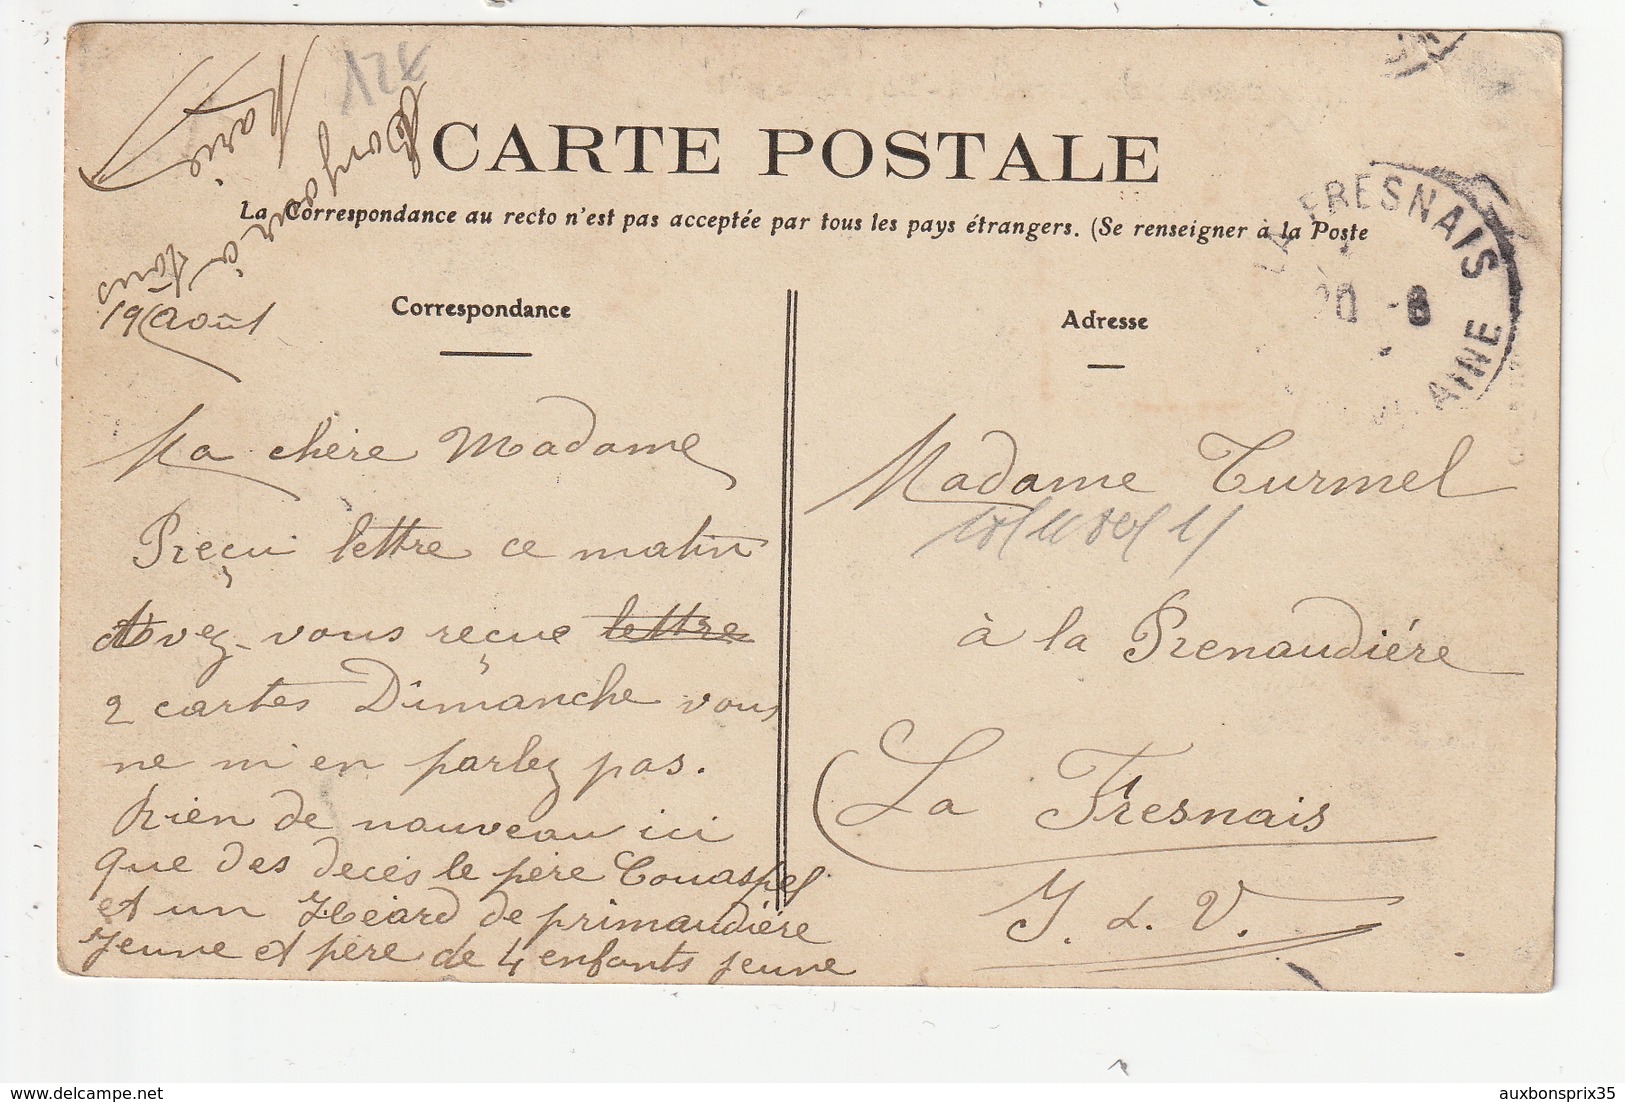 12€
CARTE POSTALE
La Correspondance au recto n'est pas acceptée par tous les pays étrangers. (Se renseigner à la Poste
Correspondance
Adresse
LA FRESNAIS
20 -8
AINE
Bonjour à
tous
Marie
19 Août
Ma chère Madame
Reçu lettre ce matin
Avez-vous reçue lettre
2 cartes Dimanche vous
ne m'en parlez pas.
Rien de nouveau ici
que des decès le père Couaspel
et un Héard de primaudière
jeune et père de 4 enfants jeune
Madame Turmel
à la Renaudière
La Fresnais
I. &. V.
delcampe.net
auxbonsprix35